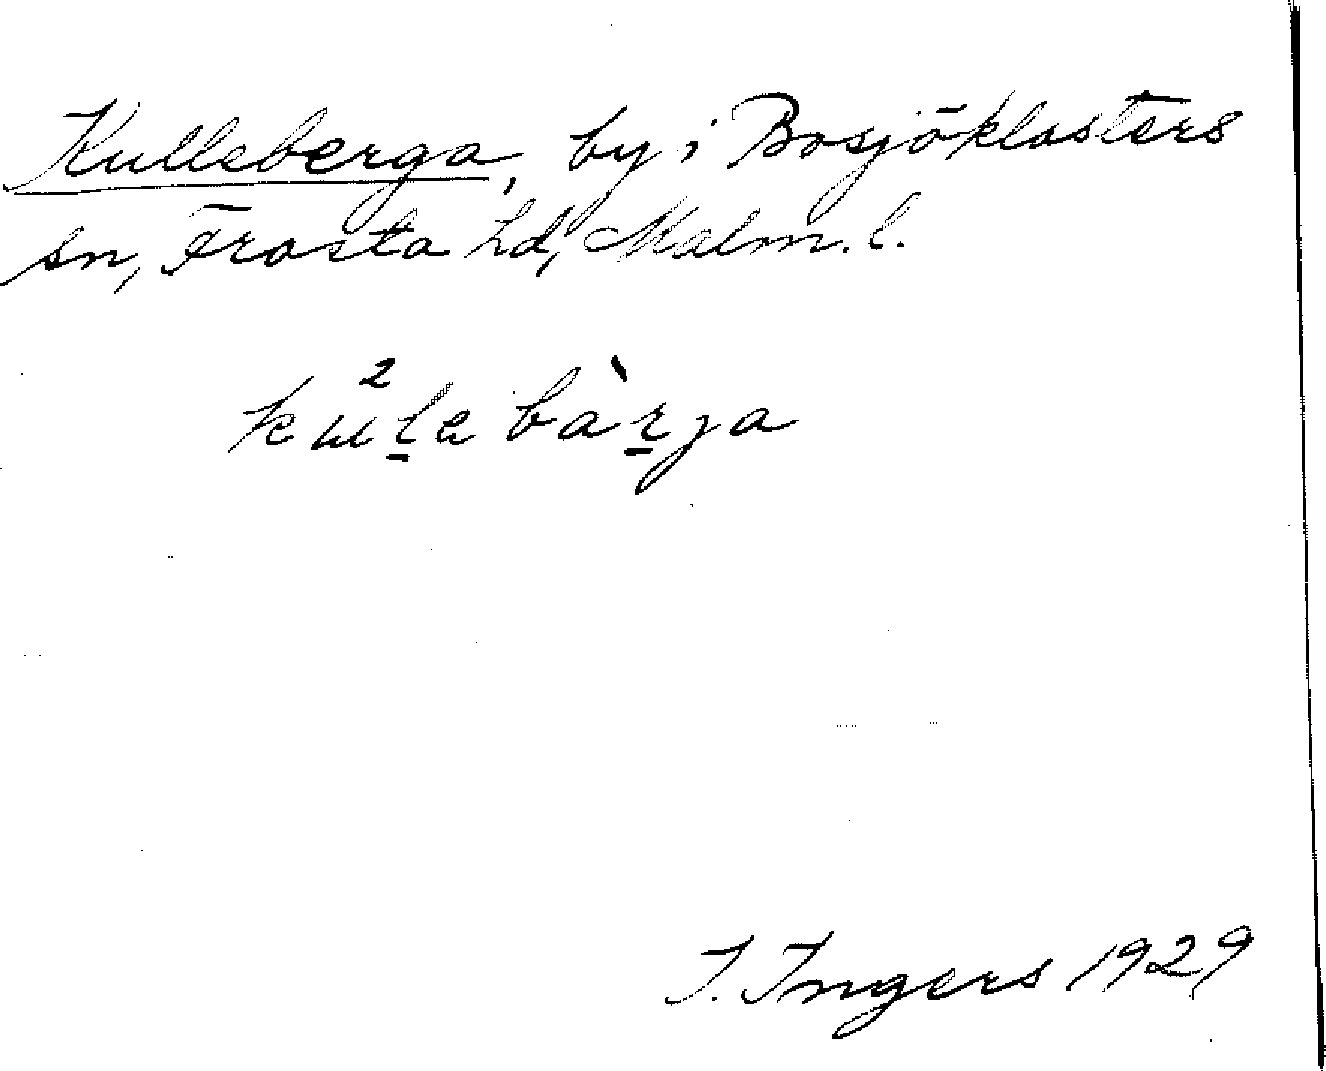 Kulleberga, by i Bosjöklosters
sn, Frosta hd, Malm. l.
ku²l̲ebàr̲ja
I. Ingers 1929